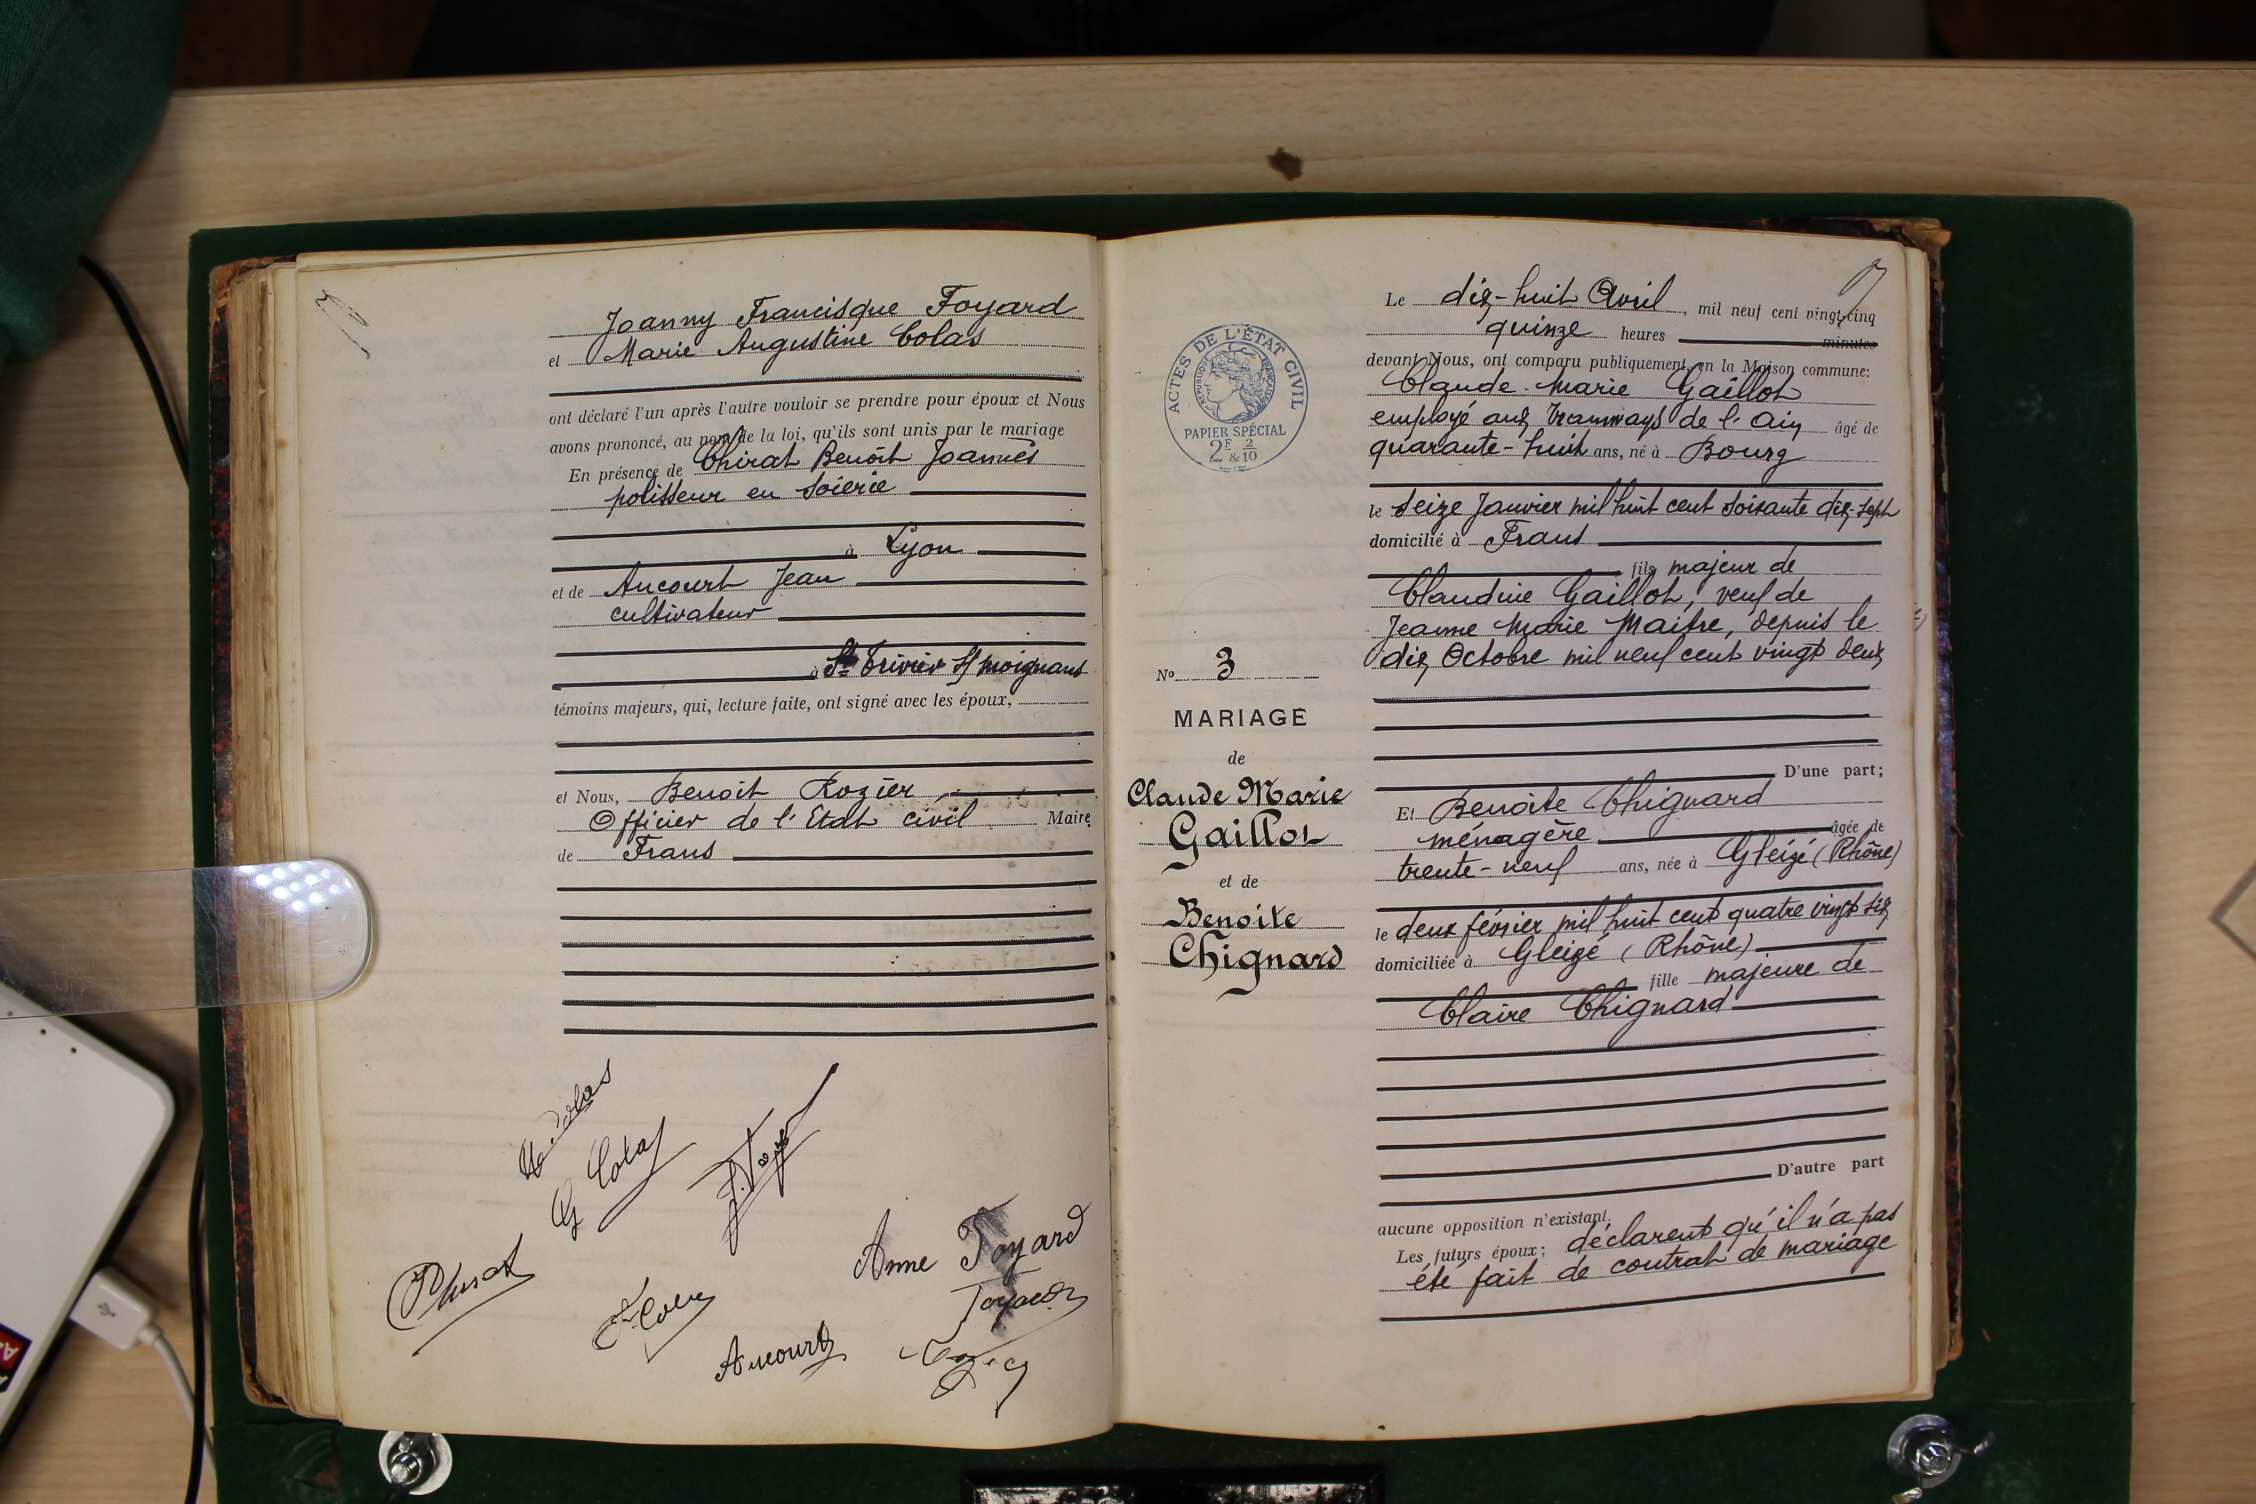 Joanny Francisque Foyard
et Marie Augustine Colas
ont déclaré l'un après l'autre vouloir se prendre pour époux et Nous
avons prononcé, au nom de la loi, qu'ils sont unis par le mariage
En présence de Chirat Benoît Joannès
polisseur en soierie
à Lyon
et de Aucourt Jean
cultivateur
à St Trivier s/ moignans
témoins majeurs, qui, lecture faite, ont signé avec les époux,
et Nous, Benoit Rozier,
Officier de l'Etat civil Maire
de Frans
Colas
G Colas
Chirat
Anne Foyard
Foyard
Aucourt
ACTES DE L'ÉTAT CIVIL
RÉPUBLIQUE FRANÇAISE
PAPIER SPÉCIAL
2F & 2/10
No 3
MARIAGE
de
Claude Marie
Gaillot
et de
Benoite
Chignard
Le dix-huit Avril, mil neuf cent vingt-cinq
quinze heures minutes
devant Nous, ont comparu publiquement en la Maison commune:
Claude-Marie Gaillot
employé aux tramways de l'Ain âgé de
quarante-huit ans, né à Bourg
le seize Janvier mil huit cent soixante dix-sept
domicilié à Frans
fils majeur de
Claudine Gaillot, veuf de
Jeanne Marie Maitre, depuis le
dix Octobre mil neuf cent vingt deux
D'une part;
Et Benoite Chignard
ménagère âgée de
trente-neuf ans, née à Gleizé (Rhône)
le deux février mil huit cent quatre vingt six
domiciliée à Gleizé (Rhône)
fille majeure de
Claire Chignard
D'autre part
aucune opposition n'existant.
Les futurs époux; déclarent qu'il n'a pas
été fait de contrat de mariage